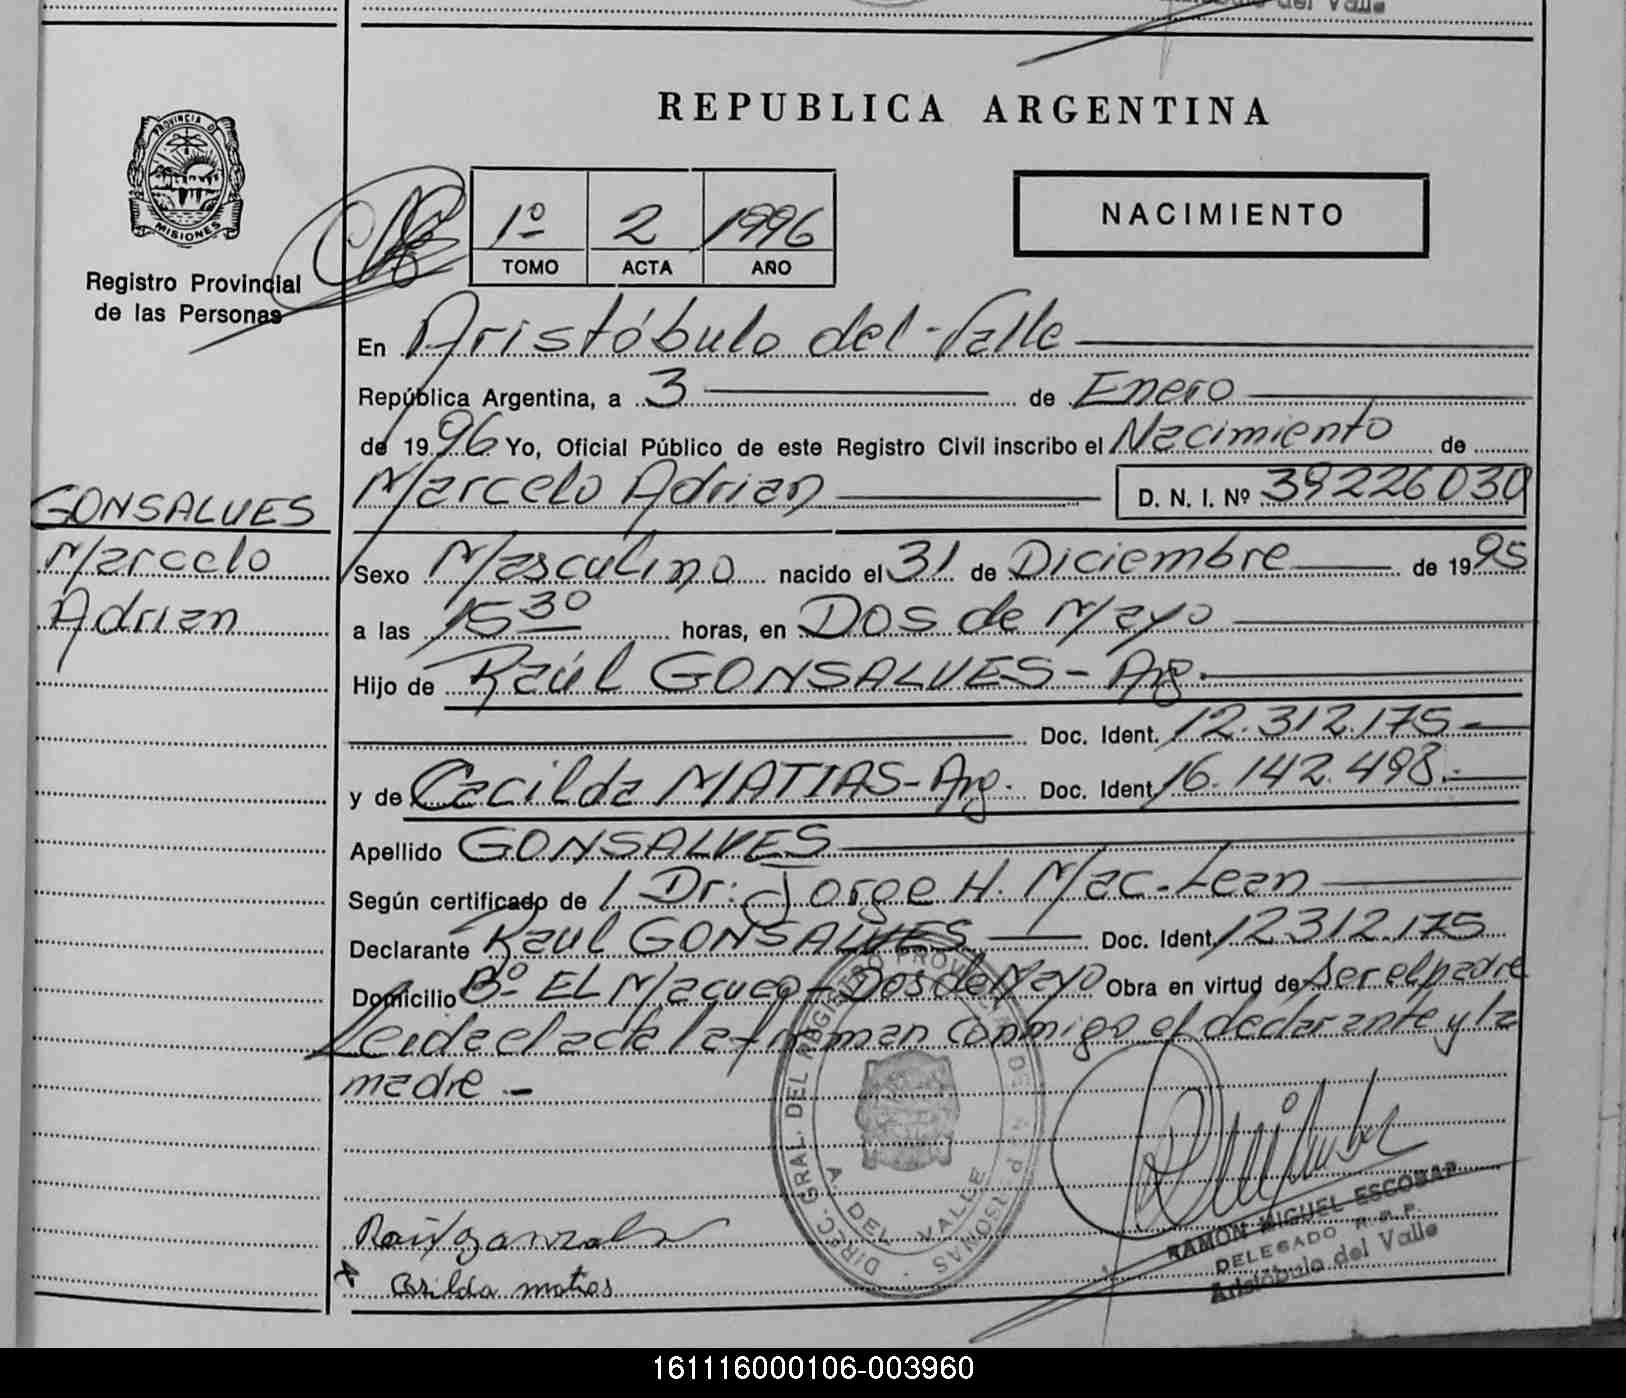 del Valle
REPUBLICA ARGENTINA
PROVINCIA DE
MISIONES
Registro Provincial
de las Personas
1º 2 1996
TOMO ACTA AÑO
NACIMIENTO
En Aristóbulo del Valle
República Argentina, a 3 de Enero
de 1996 Yo, Oficial Público de este Registro Civil inscribo el Nacimiento de
Marcelo Adrian D. N. I. Nº 39226030
GONSALVES
Marcelo
Adrian
Sexo Masculino nacido el 31 de Diciembre de 1995
a las 15 30 horas, en Dos de Mayo
Hijo de Raúl GONSALVES - Arg.
Doc. Ident. 12.312.175 -
y de Cacilda MATIAS - Arg. Doc. Ident. 16.142.498.-
Apellido GONSALVES
Según certificado de / Dr: Jorge H. Mac-Lean
Declarante Raul GONSALVES Doc. Ident. 12312.175
Domicilio Bº EL Macuco - Dos de Mayo Obra en virtud de ser el padre
Leida el acta la firman conmigo el declarante y la
madre -
DIREC. GRAL. DEL REGISTRO PROVINCIAL DE LAS PERSONAS
A. DEL VALLE
RAMON MIGUEL ESCOBAR
DELEGADO R.P.P.
Aristóbulo del Valle
x
161116000106-003960